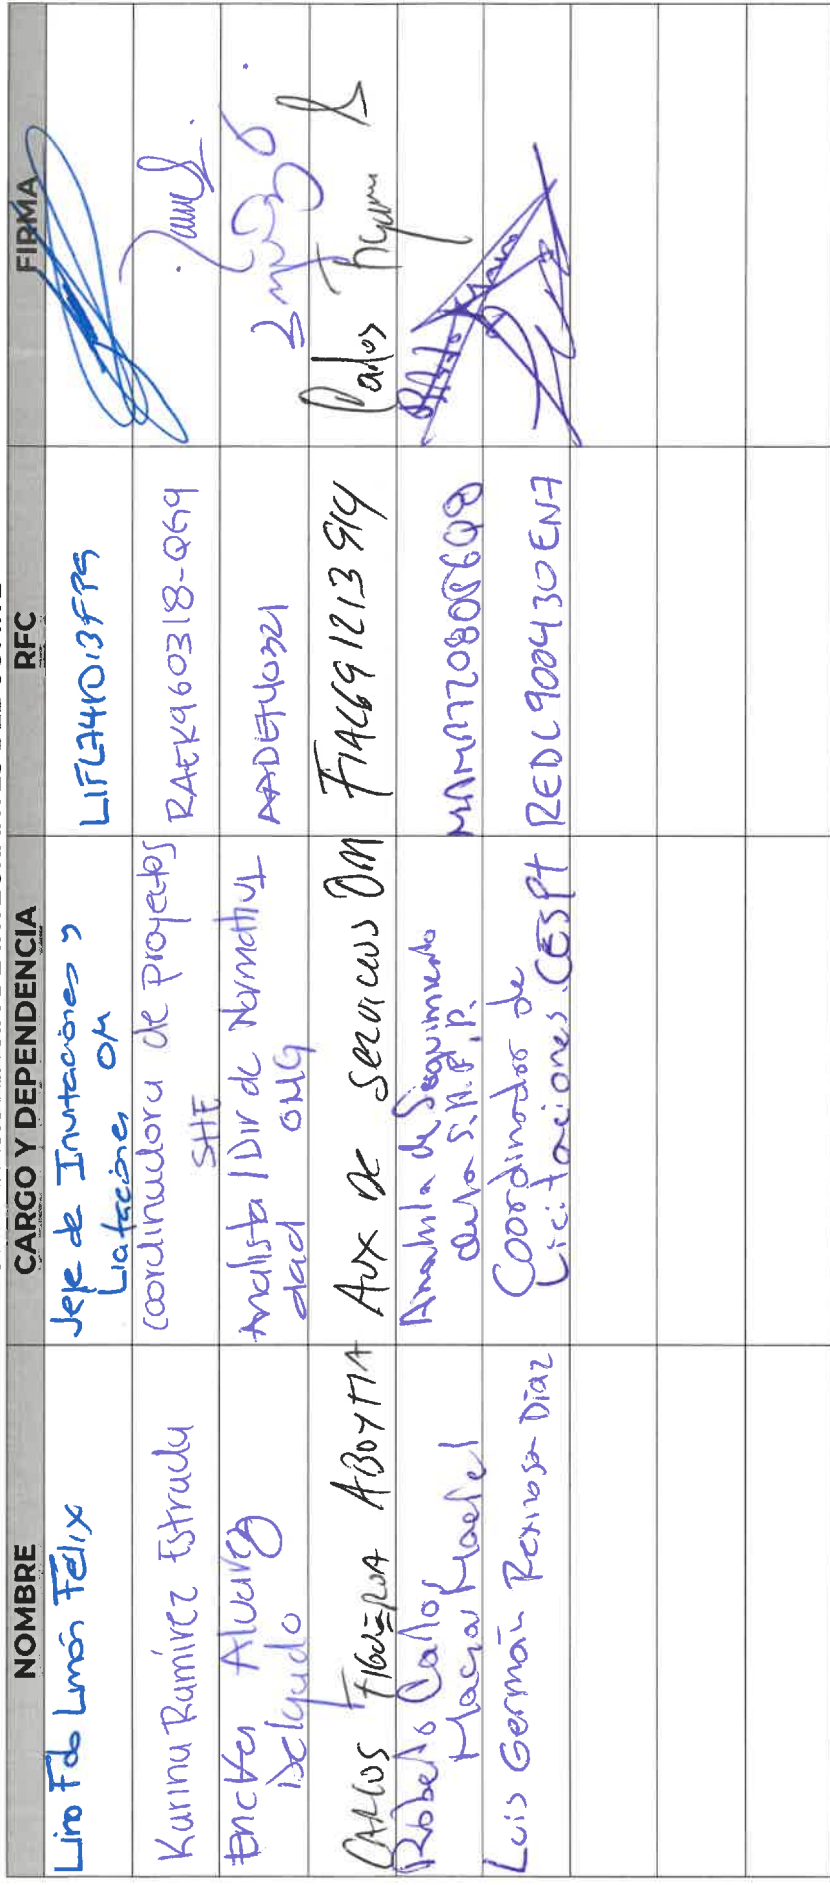 NOMBRE CARGO Y DEPENDENCIA RFC FIRMA
Lino Fdo Limón Félix
Jefe de Invitaciones y
Liataciones OM
Karina Ramírez Estrada
Coordinadora de proyectos
SHE
RAEK960318-QG9
Alvarez
Delgado
Analista / Dir de Normativi
dad OMG
CARLOS FIGUEROA ABOYTIA
AUX DE SERVICIOS OM
FIAC691213914
Carlos
Roberto Carlos
Macial
Analista de Seguimiento
de la S.H.F.P.
Luis Germán Reynosa Díaz
Coordinador de
Licitaciones CESPT
REDL900430EN7